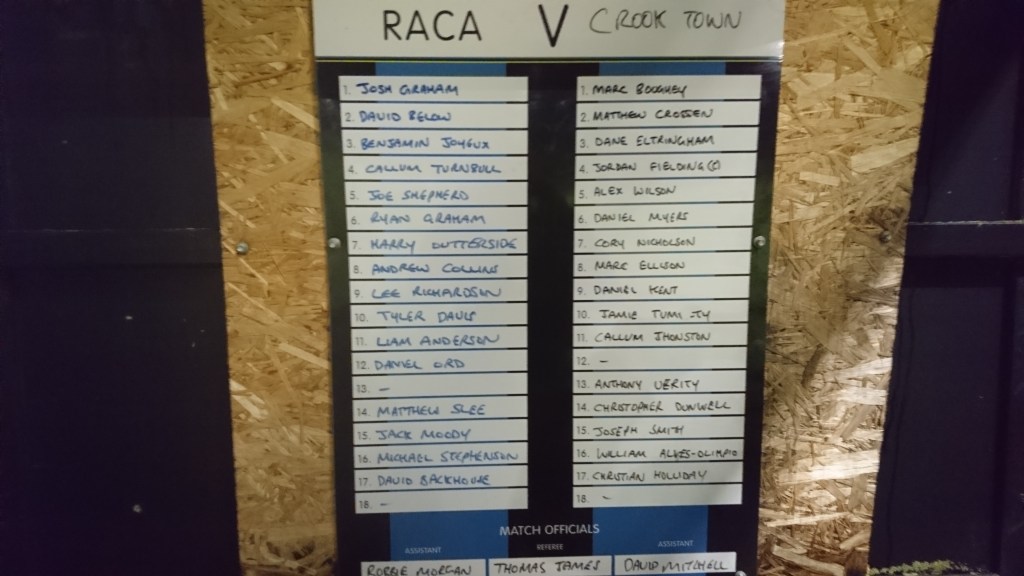 RACA V CROOK TOWN
1. JOSH GRAHAM
2. DAVID BELOW
3. BENJAMIN JOYEUX
4. CALLUM TURNBULL
5. JOE SHEPHERD
6. RYAN GRAHAM
7. HARRY DUTTERSIDE
8. ANDREW COLLINS
9. LEE RICHARDSON
10. TYLER DAVIS
11. LIAM ANDERSON
12. DANIEL ORD
13. -
14. MATTHEW SLEE
15. JACK MOODY
16. MICHAEL STEPHENSON
17. DAVID BACKHOUSE
18. -
1. MARC BOUGHEY
2. MATTHEW CROSSEN
3. DANE ELTRINGHAM
4. JORDAN FIELDING (C)
5. ALEX WILSON
6. DANIEL MYERS
7. CORY NICHOLSON
8. MARC ELLISON
9. DANIEL KENT
10. JAMIE
11. CALLUM JHONSTON
12. -
13. ANTHONY VERITY
14. CHRISTOPHER DUNWELL
15. JOSEPH SMITH
16. WILLIAM ALVES-OLIMPIO
17. CHRISTIAN HOLLIDAY
18. -
MATCH OFFICIALS
ASSISTANT REFEREE ASSISTANT
ROBBIE MORGAN THOMAS JAMES DAVID MITCHELL